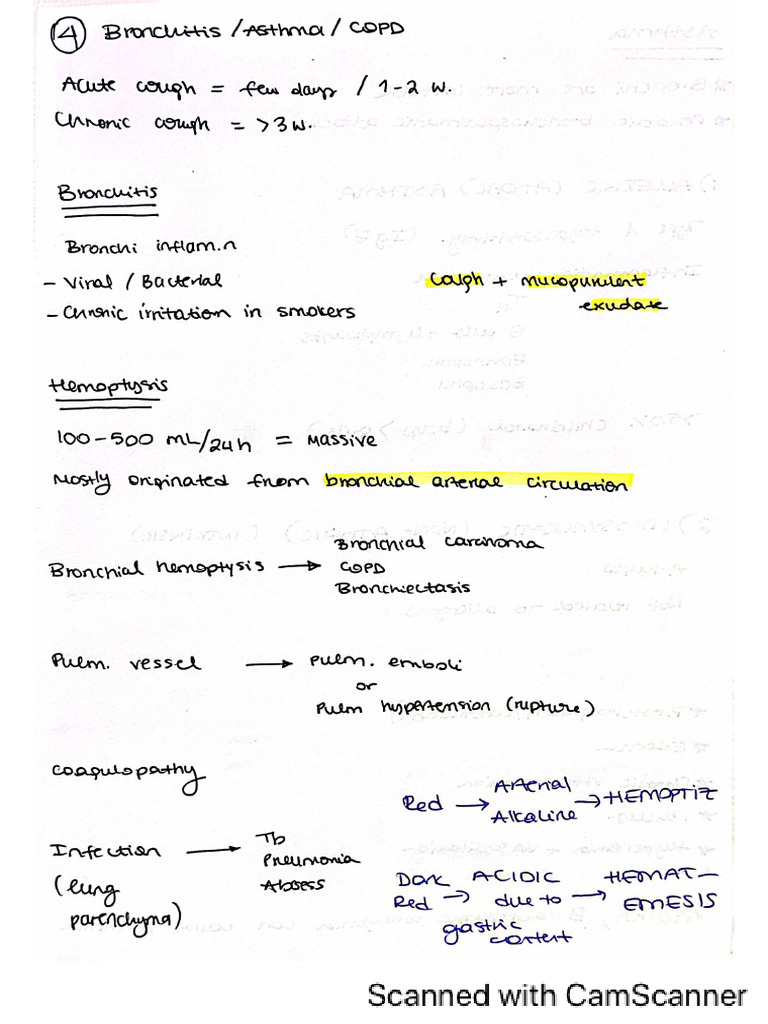 ④ Bronchitis / Asthma / COPD
Acute cough = few days / 1-2 w.
Chronic cough = >3w.
Bronchitis
Bronchi inflam.n
- Viral / Bacterial
- Chronic irritation in smokers
Cough + mucopurulent
exudate
Hemoptysis
100-500 mL/24h = Massive
Mostly originated from bronchial arterial circulation
Bronchial hemoptysis → Bronchial carcinoma
COPD
Bronchiectasis
Pulm. vessel → pulm. emboli
or
Pulm hypertension (rupture)
Coagulopathy
Red → Arterial
Alkaline → HEMOPTIZ
Infection → Tb
Pneumonia
Abscess
(lung
parenchyma)
Dark ACIDIC HEMAT-
Red → due to → EMESIS
gastric
content
Scanned with CamScanner